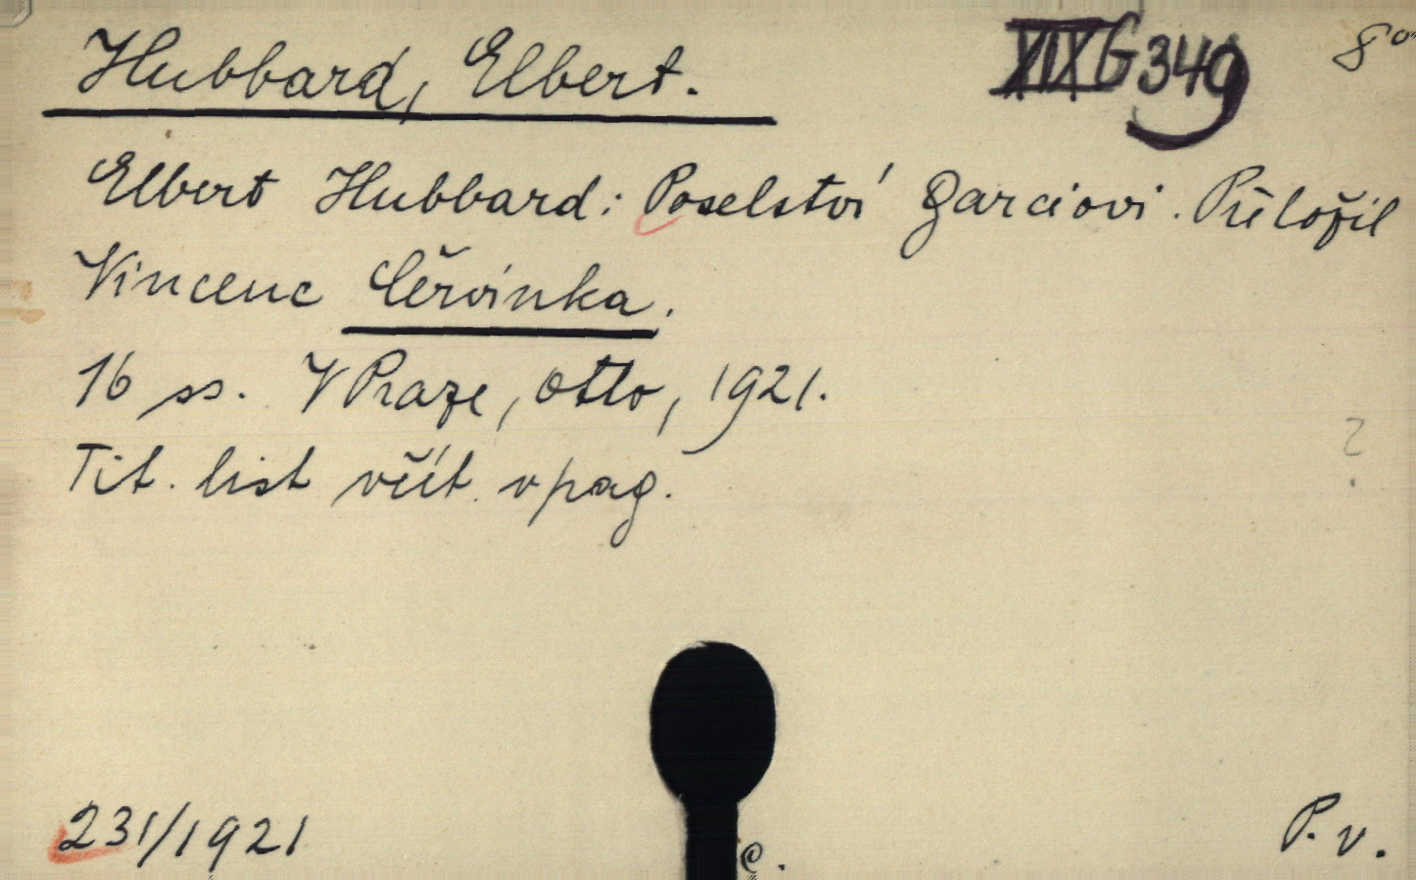 Hubbard, Elbert. XIX G 349 8°
Elbert Hubbard: Poselství Garciovi. Přeložil
Vincenc Červinka.
16 ss. V Praze, Otto, 1921.
Tit. list včít. v pag.
?
231/1921 P. v.